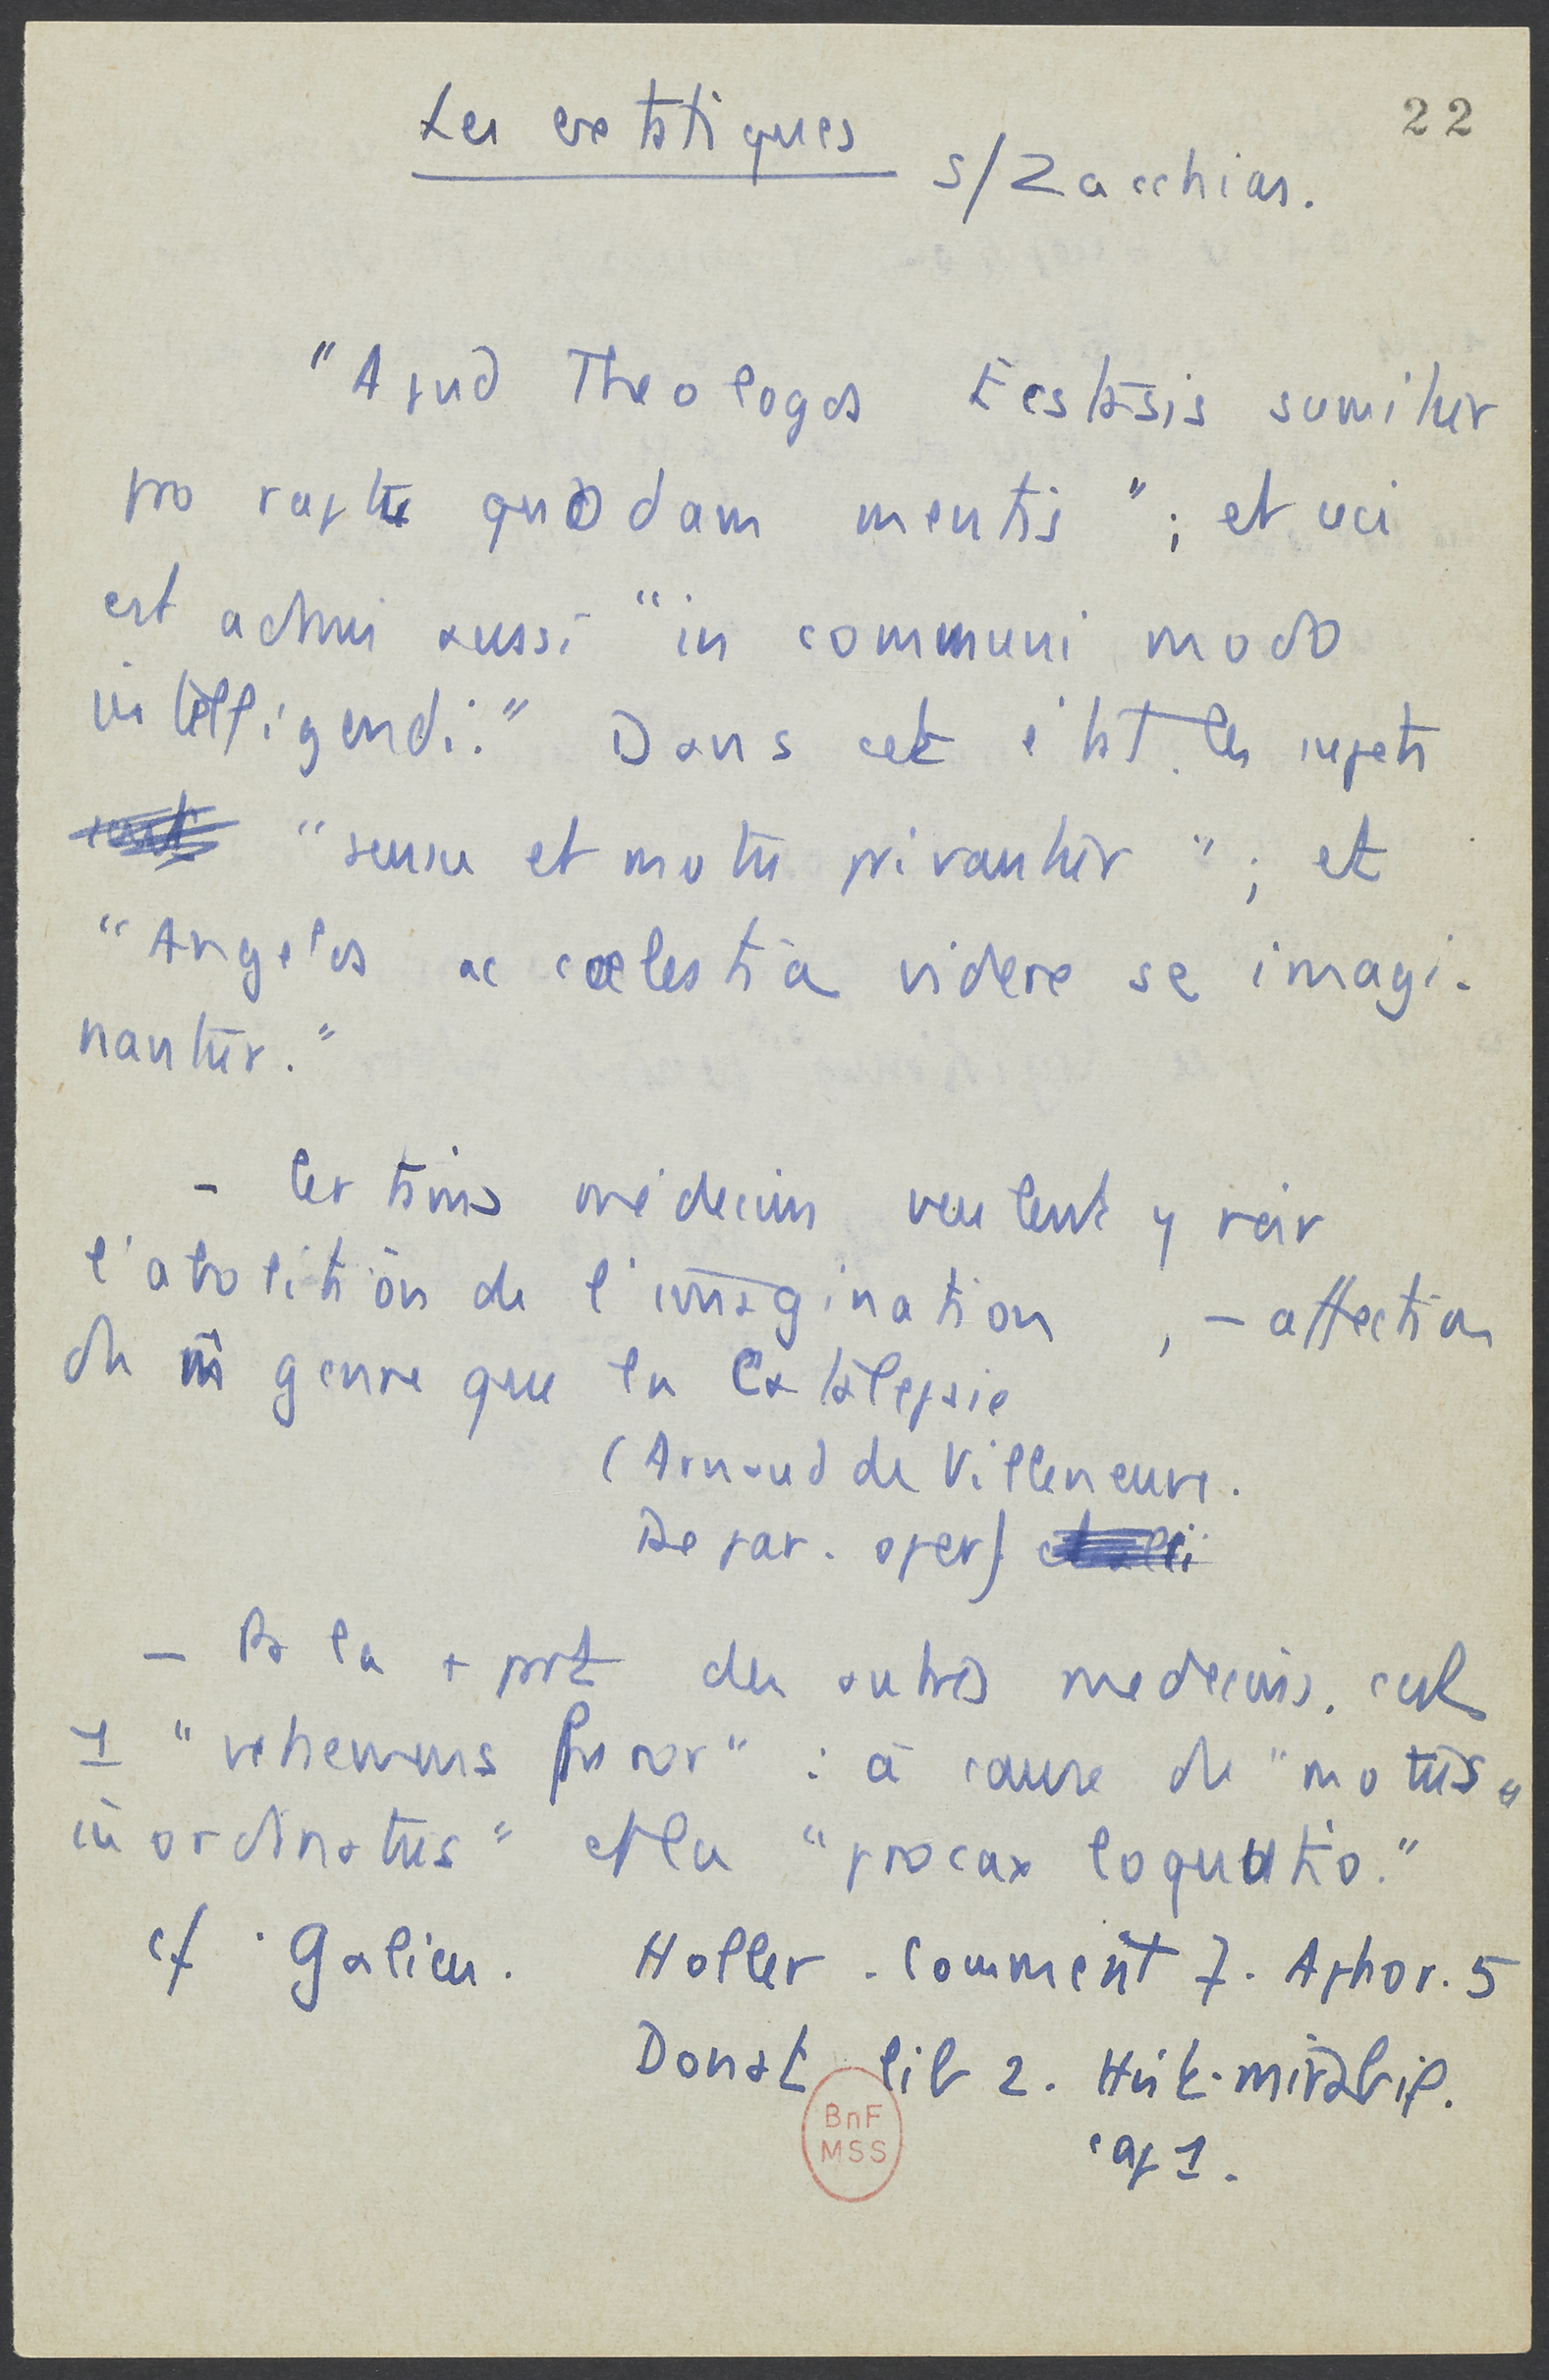 22
Les extatiques s/ Zacchias.
"Apud Theologos Ecstasis sumitur
pro raptu quodam mentis"; et ceci
est admis aussi "in communi modo
intelligendi." Dans cet état les sujets
"sensu et motu privantur"; et
"Angelos ac coelestia videre se imagi-
nantur."
- Certains médecins veulent y voir
l'abolition de l'imagination, - affection
du m̂ genre que la Catalepsie
(Arnaud de Villeneuve.
De par. oper)
- Pr la + prt des autres medecins. cest
1 "vehemens furor" : à cause de "motus
inordinatus" et la "procax loquutio."
cf. Galien. Holler. Comment 7. Aphor. 5
Donat lib 2. Hist. mirabil.
cap 1.
BnF
MSS